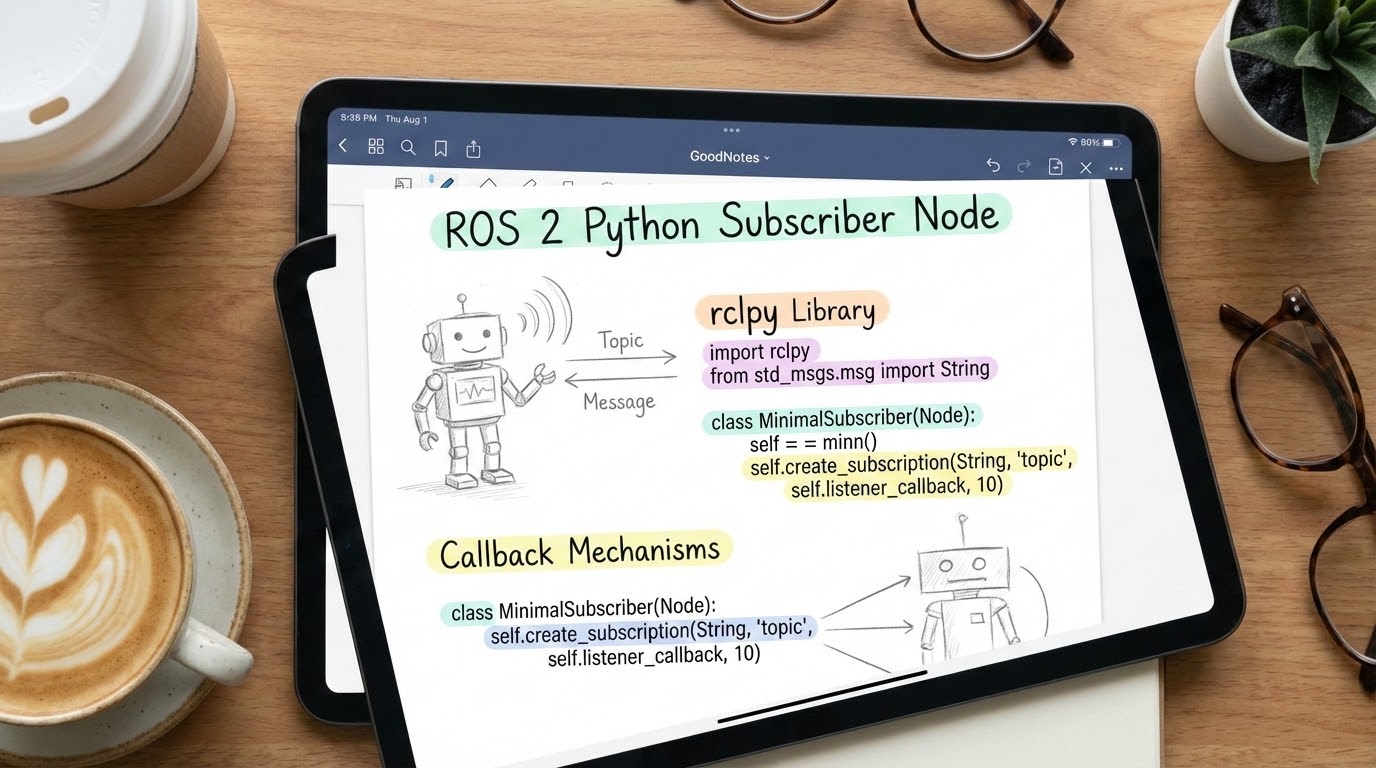 8:38 PM Thu Aug 1
80%
GoodNotes
ROS 2 Python Subscriber Node
Topic
Message
rclpy Library
import rclpy
from std_msgs.msg import String
class MinimalSubscriber(Node):
self = = minn()
self.create_subscription(String, 'topic',
self.listener_callback, 10)
Callback Mechanisms
class MinimalSubscriber(Node):
self.create_subscription(String, 'topic',
self.listener_callback, 10)